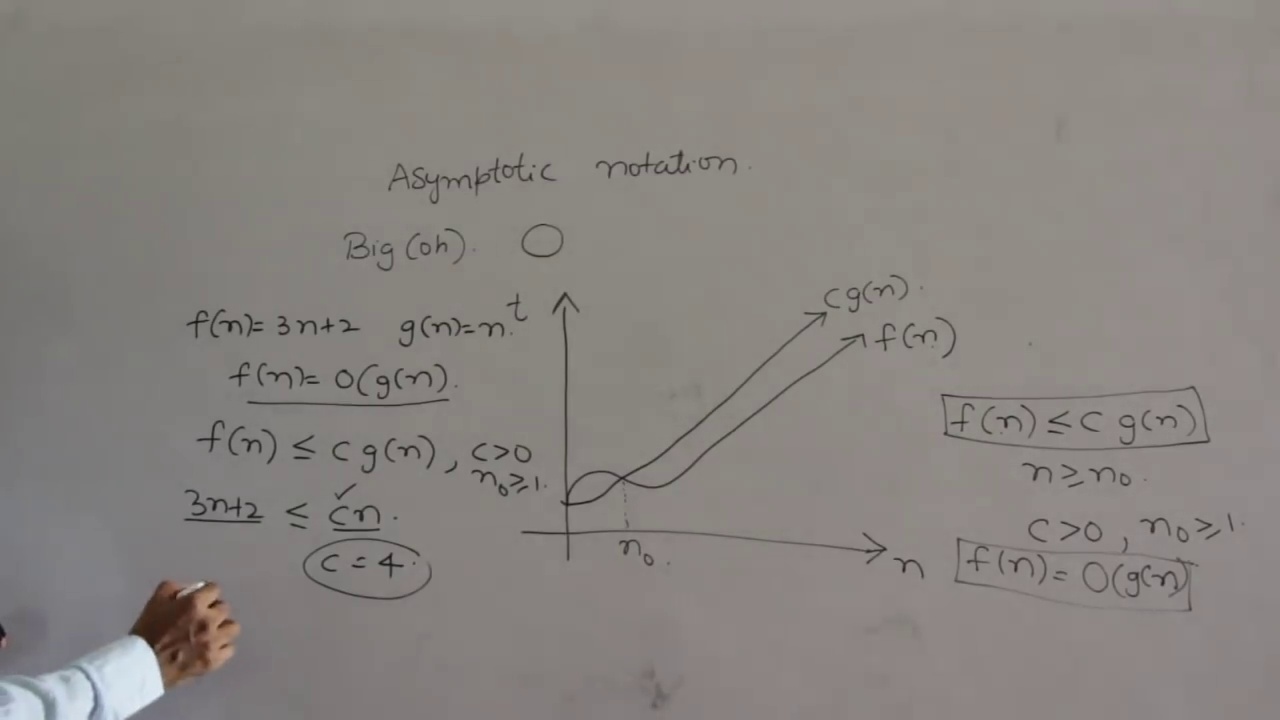 Asymptotic notation.
Big(oh). O
f(n)= 3n+2 g(n)=n.
f(n)= O(g(n).
f(n) ≤ c g(n), c>0
n₀≥1.
3n+2 ≤ cn.
c = 4.
t
c g(n).
f(n)
n₀.
n
f(n) ≤ c g(n)
n≥n₀.
c>0, n₀≥1.
f(n)= O(g(n)